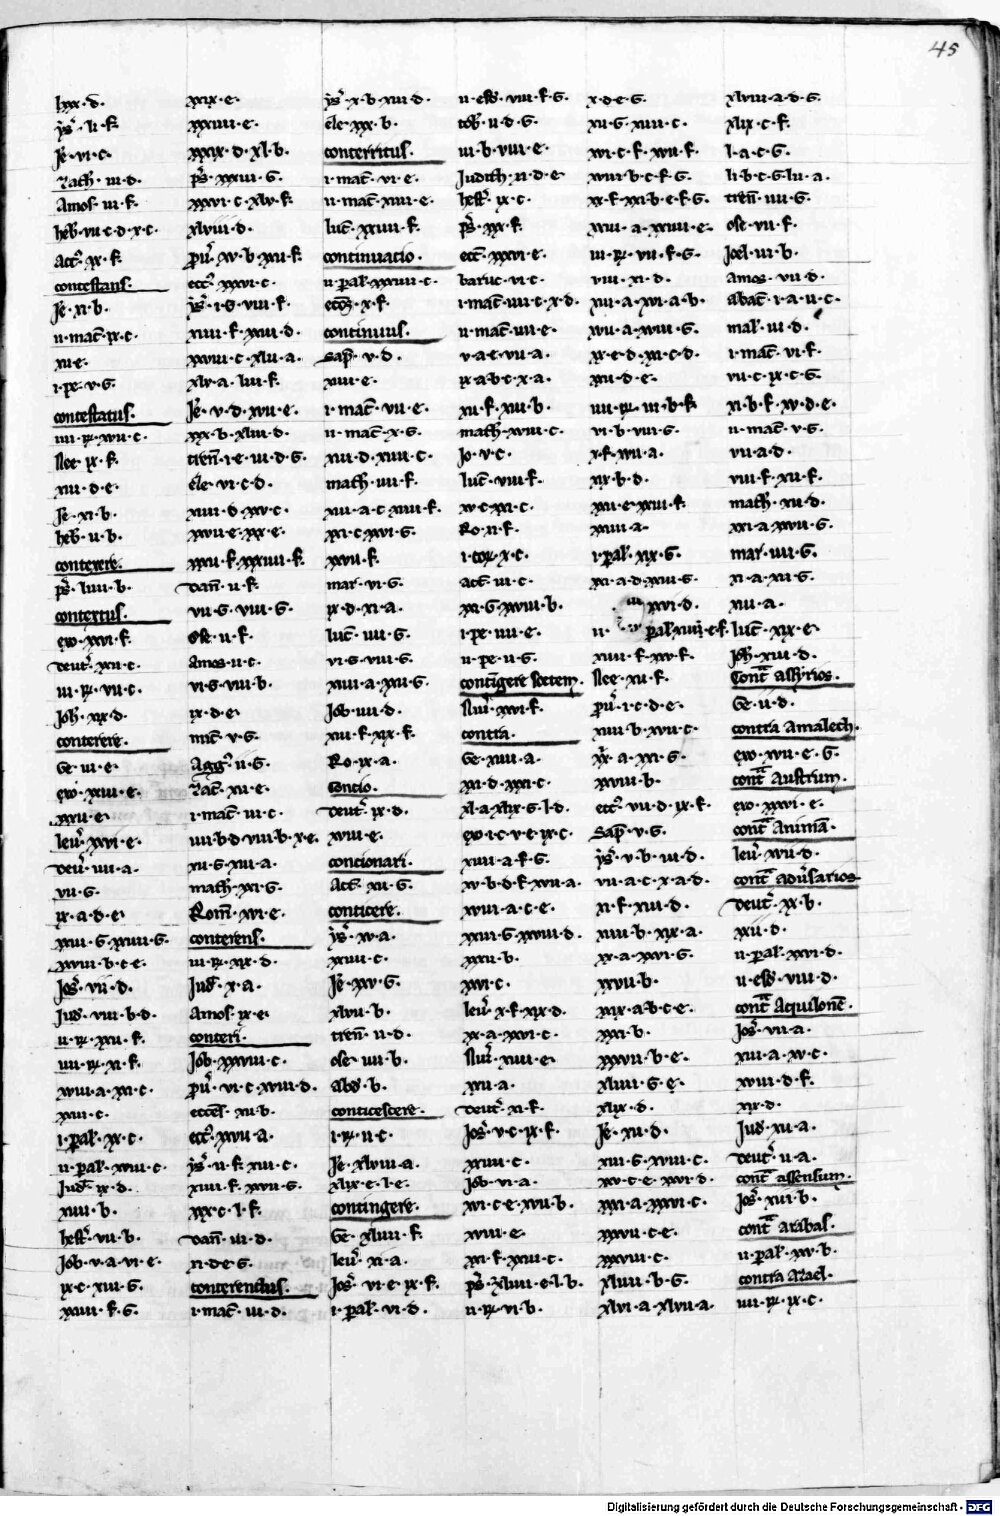 45
lxx·d·
ys̄·li·f·
Je·vi·c·
Zach·iii·d·
Amos·iii·f·
heb·vii·c·d·x·c·
Act9·xx·f·
contestans·
Je·xi·b·
ii·mac̄·ix·c·
xii·e·
i·pe·v·G·
contestatus·
iiii·R̃·xvii·c·
Nee·ix·f·
xiii·d·e·
Je·xi·b·
heb·ii·b·
contexere·
ps̄·liiii·b·
contextus·
exo·xxvi·f·
deut·xxii·c·
iii·R̃·vii·c·
Joh·xix·d·
conterere·
Ge·iii·e·
exo·xxiii·e·
xxxii·e·
leu·xxvi·e·
deut·iiii·a·
vii·G·
ix·a·d·e·
xxiii·G·xxviii·G·
xxviii·b·c·e·
Jos·vii·d·
Jud·viii·b·d·
ii·R̃·xxii·f·
iiii·R̃·xi·f·
xviii·a·xxi·c·
xxiii·c·
i·pal·xx·c·
ii·pal·xviii·c·
Jud·ix·d·
xiiii·b·
hest·vii·b·
Job·v·a·vi·e·
ix·c·xiii·G·
xxiiii·f·G·
xxix·e·
xxxiiii·e·
xxxix·d·xl·b·
ps̄·xxxiii·G·
xxxvi·c·xlv·f·
xlviii·d·
pu·xv·b·xxii·f·
ecc9·xxxvi·c·
ys̄·i·G·viii·f·
xiiii·f·xxiii·d·
xxviii·c·xlii·a·
xlv·a·liii·f·
Je·v·d·xvii·e·
xxx·b·xliii·d·
tren·i·e·iii·d·G·
eze·vi·c·d·
xiiii·d·xxv·c·
xxvii·e·xxx·e·
xxxii·f·xxxiiii·f·
dan·ii·f·
vii·G·viii·G·
ose·ii·f·
amos·ii·c·
vi·G·viii·b·
ix·d·e·
mic̄·v·G·
Agg9·ii·G·
Zac̄·xi·e·
i·mac̄·iii·c·
iiii·b·d·viii·b·x·e·
xii·G·xiii·a·
math·xxi·G·
Rom·xvi·e·
conterens·
iii·R̃·xix·d·
Jud·x·a·
Amos·ix·e·
conteri·
Job·xxxviii·c·
pu·vi·c·xviii·d·
eccēs·xii·b·
ecc9·xxvii·a·
ys̄·ii·f·xiii·c·
xiiii·f·xxvii·G·
xxx·c·l·f·
dan·iii·d·
xi·d·e·G·
conterendus·
i·mac̄·iii·d·
ys̄·x·b·xiii·d·
eze·xxx·b·
conterritus·
i·mac̄·vi·e·
ii·mac̄·xiii·e·
luc̄·xxiiii·f·
continuatio·
ii·pal·xxxiii·c·
ecc9·x·f·
continuus·
Sap̄·v·d·
xiiii·e·
i·mac̄·vii·e·
ii·mac̄·x·G·
xii·d·xiiii·c·
math·iiii·f·
xii·a·c·xiiii·f·
xxi·c·xxvi·G·
xxvii·f·
mar·vi·G·
ix·d·xi·a·
luc̄·iiii·G·
vi·G·viii·G·
xiiii·a·xxii·G·
Job·iiii·d·
xii·f·xix·f·
Ro·ix·a·
Contio·
deut·ix·d·
xviii·e·
concionari·
Act̄·xii·G·
conticere·
ys̄·xv·a·
xxiii·c·
Je·xv·G·
xlvii·b·
tren·ii·d·
ose·iiii·b·
abd·b·
conticescere·
i·R̃·ii·c·
Je·xlviii·a·
xlix·e·l·e·
contingere·
Ge·xliiii·f·
leu·xi·a·
Jos·vi·c·ix·f·
i·pal·vi·d·
ii·esd·viii·f·G·
tob·ii·d·G·
iii·b·viii·e·
Judith·xi·d·e·
hest·ix·c·
ps̄·xxx·f·
ecc̄·xxxvi·e·
baruc·vi·c·
i·mac̄·iiii·c·x·d·
ii·mac̄·iii·e·
v·a·e·vii·a·
ix·a·b·c·x·a·
xii·f·xiii·b·
math·xviii·c·
Jo·v·c·
luc̄·viii·f·
xv·c·xxi·c·
Ro·xi·f·
i·cor·x·c·
act̄·iii·c·
xxi·G·xxviii·b·
i·pe·iiii·e·
ii·pe·ii·G·
contingere sortem·
Nu·xxvi·f·
contra·
Ge·xiii·a·
xxi·d·xxxi·c·
xl·a·xlix·G·l·d·
exo·i·c·v·e·ix·c·
xiiii·a·f·G·
xv·b·d·f·xvii·a·
xviii·a·c·e·
xxiii·G·xxviii·d·
xxxii·b·
xxvi·c·
leu·x·f·xix·d·
xx·a·xxvi·c·
Nu·xiiii·e·
xxii·a·
deut·xi·f·
Jos·v·c·ix·f·
xxiiii·c·
Job·vi·a·
xvi·c·e·xxii·b·
xviii·e·
xxi·f·xxiii·c·
ps̄·xliiii·e·l·b·
ii·R̃·vi·b·
x·d·e·G·
xii·G·xiiii·c·
xvi·c·f·xvii·f·
xviii·b·c·f·G·
xx·f·xxi·b·e·f·G·
xxiii·a·xxiiii·e·
iii·R̃·vii·f·G·
viii·xi·d·
xii·a·xvi·a·b·
xvii·a·xviii·G·
xx·e·d·xxi·c·d·
xxii·d·e·
iiii·R̃·iii·b·f·
vi·b·viii·G·
x·f·xvii·a·
xix·b·d·
xxii·e·xxiii·f·
xxiiii·a·
i·pal·xix·G·
xxi·a·d·xxiii·G·
iii xvi·d·
ii· pal·xiiij·e·f·
xiiii·f·xxv·f·
Nee·xii·f·
pu·i·c·d·e·
xiiii·b·xvii·c·
xx·a·xxi·G·
xxviii·b·
ecc9·vii·d·ix·f·
Sap̄·v·G·
ys̄·v·b·iii·d·
vii·a·c·x·a·d·
xi·f·xiii·d·
xiiii·b·xix·a·
xx·a·xxvi·G·
xxvii·b·
xxix·a·b·c·e·
xxxi·b·
xxxvii·b·e·
xliiii·G·e·
xlix·d·
Je·xii·d·
xiii·G·xviii·c·
xv·c·e·xxvi·d·
xxxi·a·xxxvi·c·
xxxvii·c·e·
xxxviii·c·
xliiii·b·G·
xlvi·a·xlvii·a·
xlviii·a·d·G·
xlix·c·f·
l·a·c·G·
li·b·c·G·lii·a·
tren·iiii·G·
ose·vii·f·
Joel·iii·b·
amos·vii·d·
abac̄·i·a·ii·c·
mal·iii·d·
i·mac̄·vi·f·
vii·c·ix·c·G·
xi·b·f·xv·d·e·
ii·mac̄·v·G·
vii·a·d·
viii·f·xii·f·
math·xii·d·
xxi·a·xxvii·G·
mar·iiii·G·
xi·a·xii·G·
xiii·a·
luc̄·xix·e·
Joh·xiii·d·
Cont̄ assyrios·
Ge·ii·d·
contra Amalech·
exo·xvii·e·G·
cont̄ Austrum·
exo·xxvi·e·
cont̄ Animā·
leu·xvii·d·
cont̄ adu̇sarios
deut·xx·b·
xxii·d·
ii·pal·xxvi·d·
ii·esd·viii·d·
cont̄ Aquilonē·
Jos·vii·a·
xiii·a·xv·c·
xviii·d·f·
xix·d·
Jud·xii·a·
deut·ii·a·
cont̄ assensum·
Jos·xiii·b·
cont̄ arabas·
ii·pal·xv·b·
contra Azael·
iiii·R̃·ix·c·
Digitalisierung gefördert durch die Deutsche Forschungsgemeinschaft - DFG